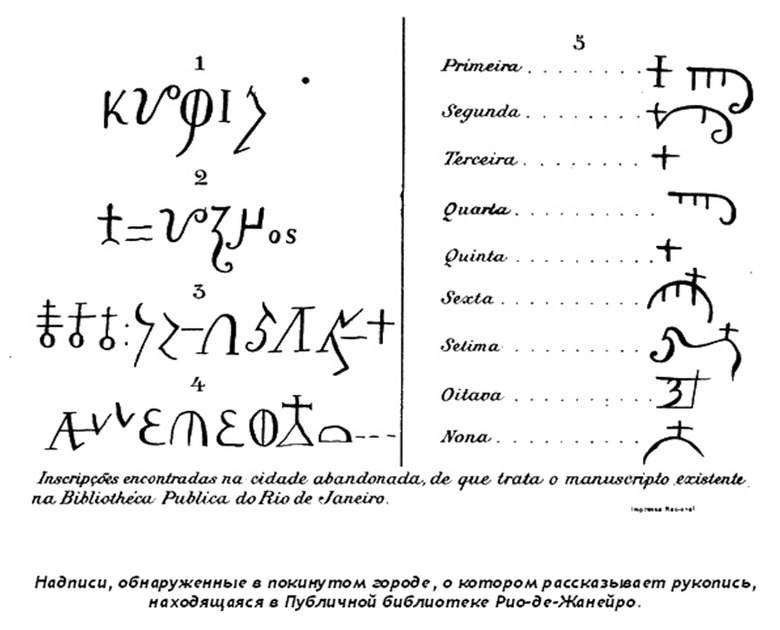 1
2
3
4
5
Primeira
Segunda
Terceira
Quarta
Quinta
Sexta
Setima
Oitava
Nona
Inscripções encontradas na cidade abandonada, de que trata o manuscripto existente
na Bibliothéca Publica do Rio de Janeiro.
Imprensa Nacional
Надписи, обнаруженные в покинутом городе, о котором рассказывает рукопись,
находящаяся в Публичной библиотеке Рио-де-Жанейро.